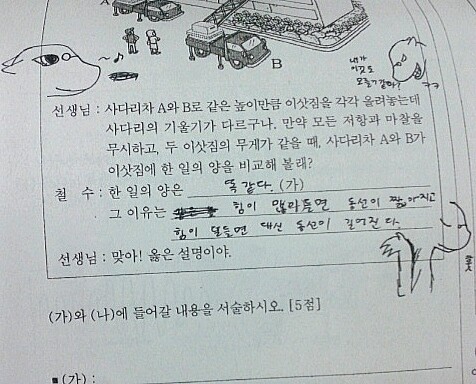 A
B
내가
이것도
모를거같아?
ㅋㅋ
선생님 : 사다리차 A와 B로 같은 높이만큼 이삿짐을 각각 올려놓는데
사다리의 기울기가 다르구나. 만약 모든 저항과 마찰을
무시하고, 두 이삿짐의 무게가 같을 때, 사다리차 A와 B가
이삿짐에 한 일의 양을 비교해 볼래?
철 수 : 한 일의 양은 똑같다. (가)
그 이유는 힘이 많아들면 동선이 짧아지고
힘이 덜들면 대신 동선이 길어진다.
선생님 : 맞아! 옳은 설명이야.
(가)와 (나)에 들어갈 내용을 서술하시오. [5점]
■ (가) :